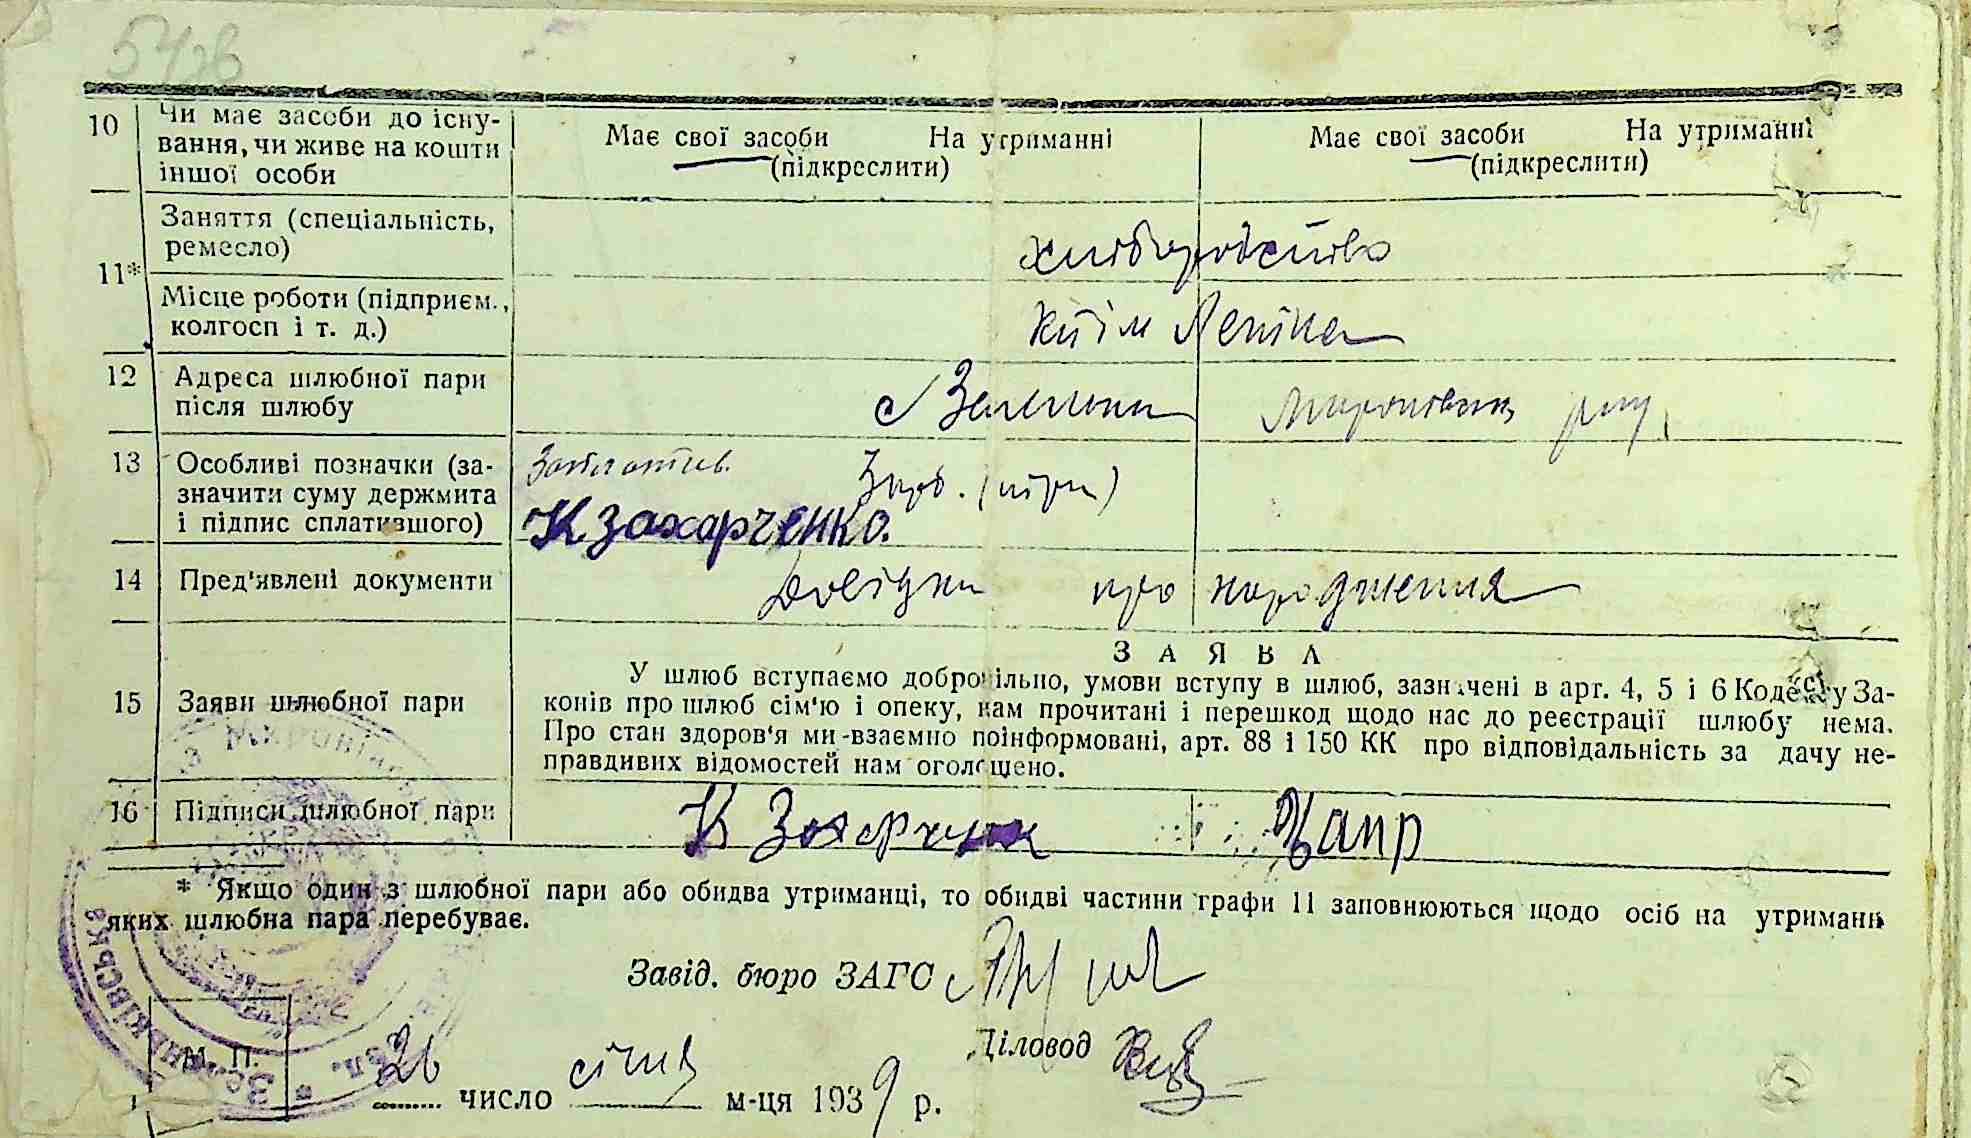 10 Чи має засоби до існу-
вання, чи живе на кошти
іншої особи
Має свої засоби На утриманні
(підкреслити)
Має свої засоби На утриманні
(підкреслити)
11* Заняття (спеціальність,
ремесло)
хліборобство
Місце роботи (підприєм.,
колгосп і т. д.)
ім Леніна
12 Адреса шлюбної пари
після шлюбу
с Зеленьки Миронівськ рну
13 Особливі позначки (за-
значити суму держмита
і підпис сплатившого)
3 крб. (три)
К Захарченко.
14 Пред'явлені документи
Довідки про народження
ЗАЯВА
15 Заяви шлюбної пари
У шлюб вступаємо добровільно, умови вступу в шлюб, зазначені в арт. 4, 5 і 6 Кодексу За-
конів про шлюб сім'ю і опеку, нам прочитані і перешкод щодо нас до реєстрації шлюбу нема.
Про стан здоров'я ми взаємно поінформовані, арт. 88 і 150 КК про відповідальність за дачу не-
правдивих відомостей нам оголошено.
16 Підписи шлюбної пари
К Захарченк
* Якщо один з шлюбної пари або обидва утриманці, то обидві частини графи 11 заповнюються щодо осіб на утриманн
яких шлюбна пара перебуває.
Завід. бюро ЗАГС
Діловод
М. П.
26 число січня м-ця 1939 р.